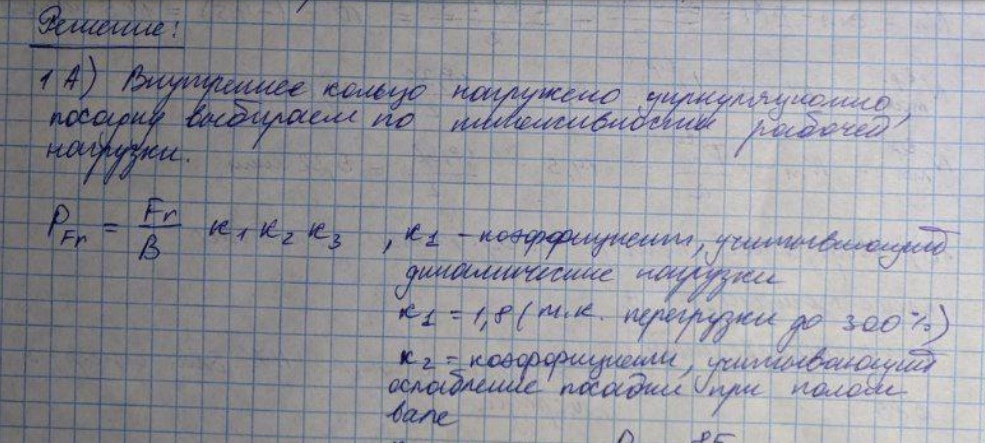 Решение:
1 А) Внутреннее кольцо нагружено циркуляционно,
посадку выбираем по интенсивности рабочей
нагрузки.
P_Fr = Fr/B к1 к2 к3 , к1 - коэффициент, учитывающий
динамические нагрузки
к1 = 1,8 (т.к. перегрузки до 300%)
к2 = коэффициент, учитывающий
ослабление посадки при полом
вале